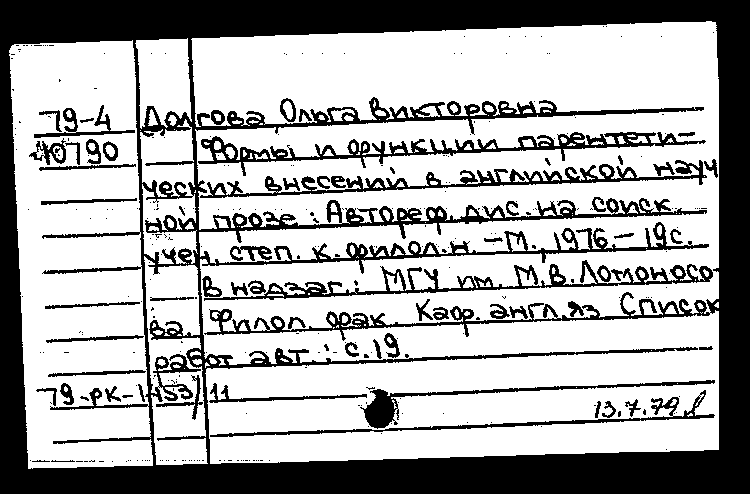 79-4 Долгова Ольга Викторовна
10790 Формы и функции парентети-
ческих внесений в английской науч
ной прозе : Автореф. дис. на соиск.
учен. степ. к. филол. н. – М., 1976. – 19 с.
В надзаг.: МГУ им. М.В.Ломоносо-
ва. Филол. фак. Каф. англ. яз Список
работ авт.: с.19.
79-РК-1453/11
13.7.79